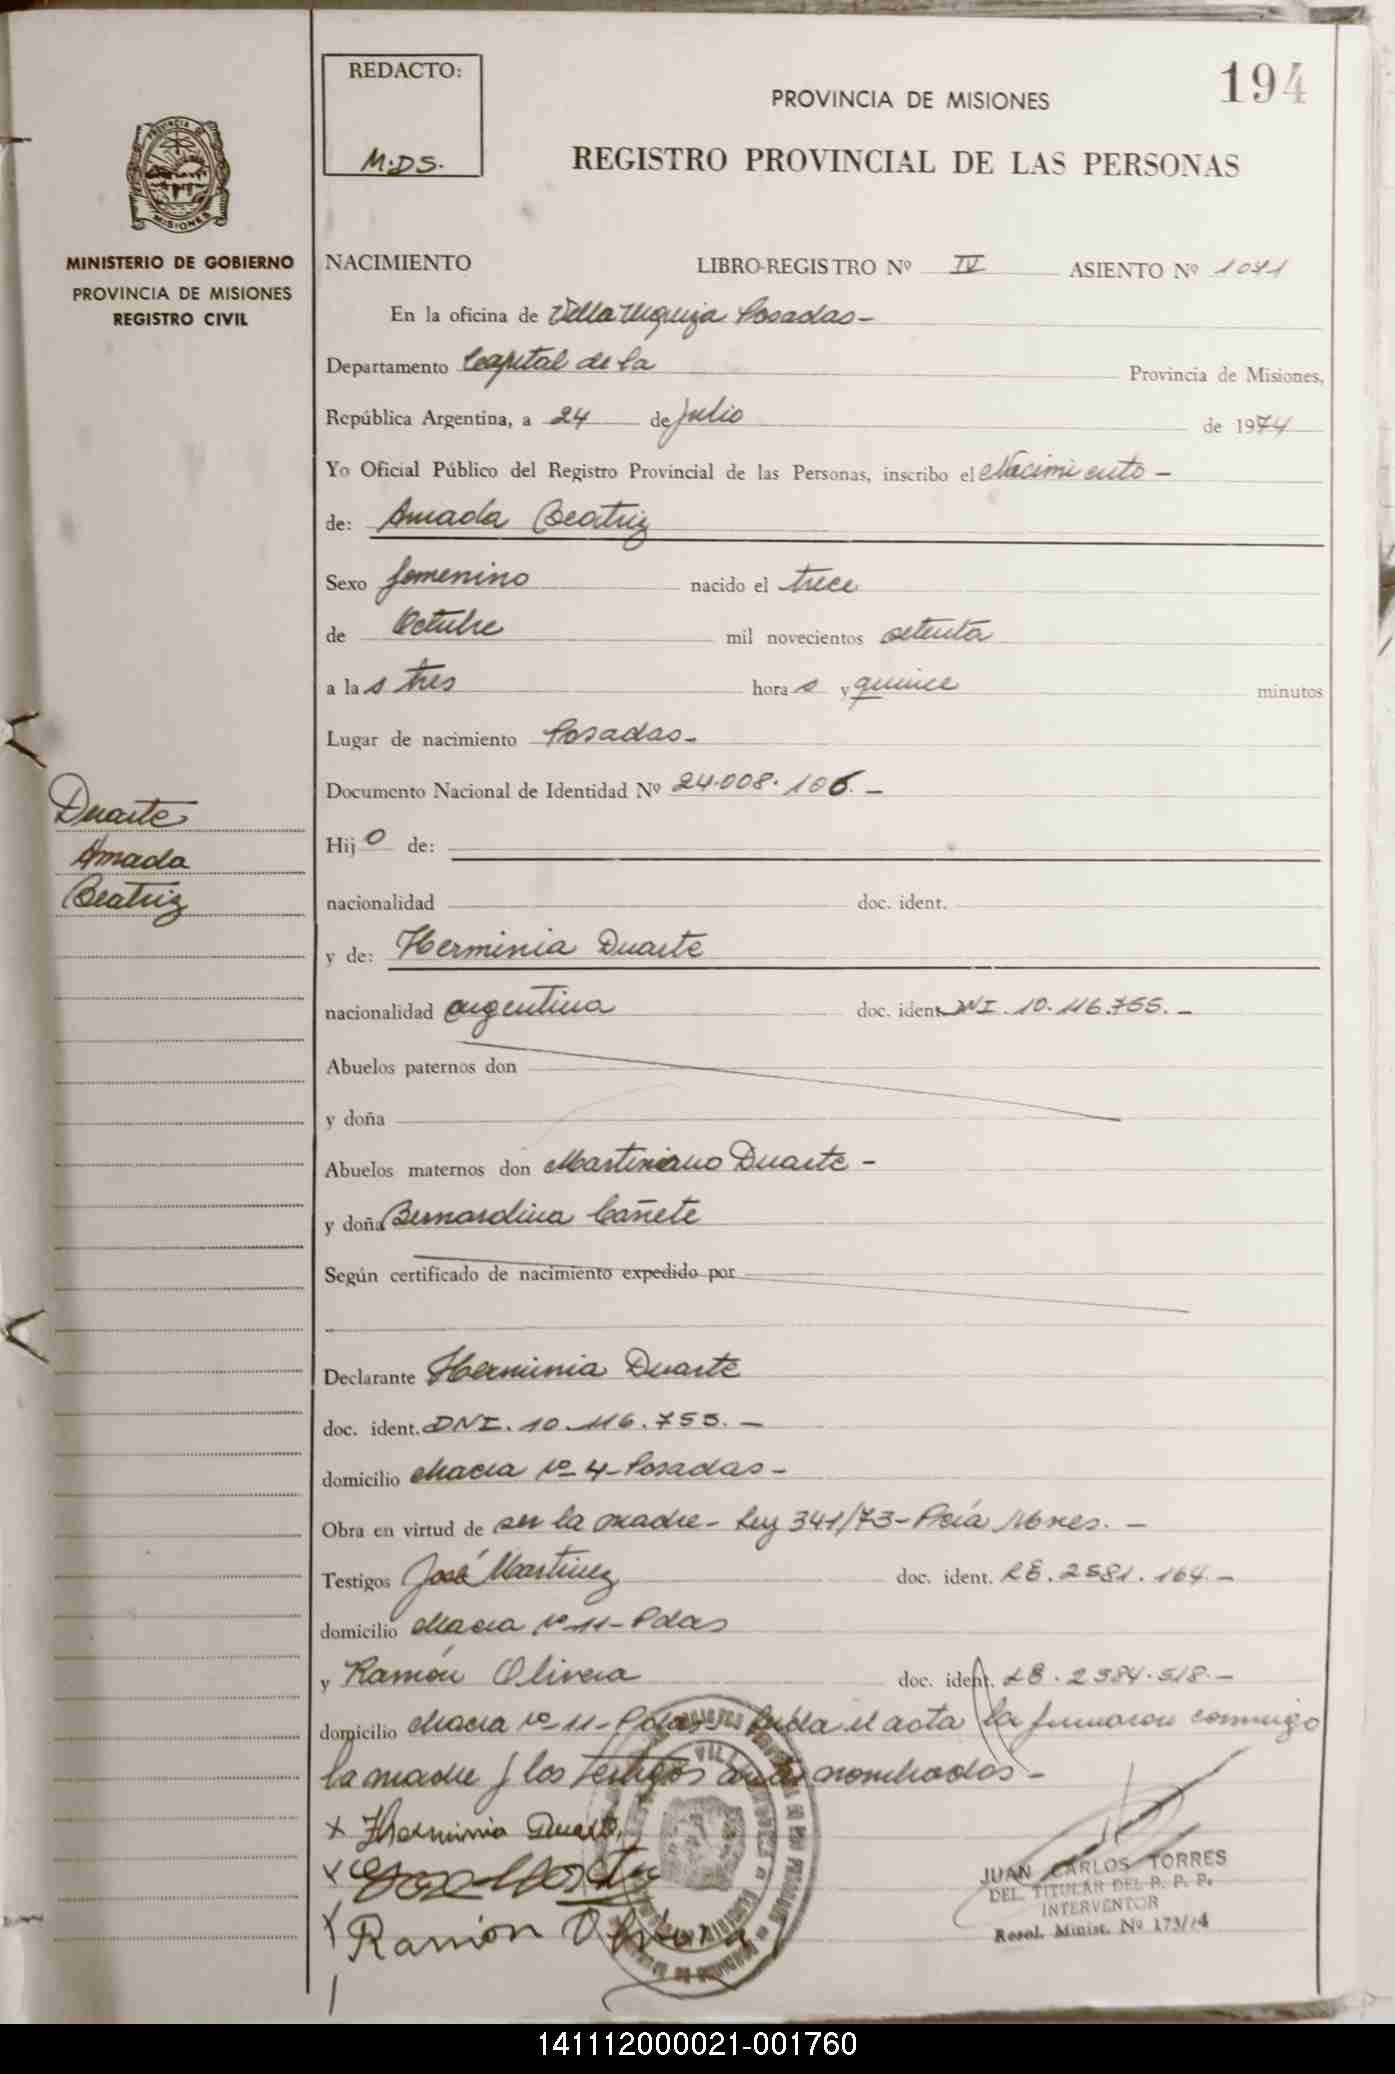 REDACTO:
M.D.S.
194
PROVINCIA DE MISIONES
REGISTRO PROVINCIAL DE LAS PERSONAS
PROVINCIA DE
MISIONES
MINISTERIO DE GOBIERNO
PROVINCIA DE MISIONES
REGISTRO CIVIL
NACIMIENTO LIBRO-REGISTRO Nº IV ASIENTO Nº 1071
En la oficina de Villa Urquiza Posadas-
Departamento Capital de la Provincia de Misiones,
República Argentina, a 24 de Julio de 1974
Yo Oficial Público del Registro Provincial de las Personas, inscribo el Nacimiento -
de: Amada Beatriz
Sexo femenino nacido el trece
de Octubre mil novecientos setenta
a las tres horas y quince minutos
Lugar de nacimiento Posadas-
Documento Nacional de Identidad Nº 24.008.106.-
Duarte
Amada
Beatriz
Hijo de:
nacionalidad doc. ident.
y de: Herminia Duarte
nacionalidad argentina doc. ident. DNI. 10.116.755.-
Abuelos paternos don
y doña
Abuelos maternos don Martiniano Duarte-
y doña Bernardina Cañete
Según certificado de nacimiento expedido por
Declarante Herminia Duarte
doc. ident. DNI. 10.116.755.-
domicilio chacra nº 4-Posadas-
Obra en virtud de ser la madre- Ley 341/73-Pcia Mnes.-
Testigos José Martinez doc. ident. LE. 2581.164.-
domicilio chacra nº 11-Pdas
y Ramón Olivera doc. ident. LE. 2384.518.-
domicilio chacra nº 11-Pdas- Leida el acta la firmaron conmigo
la madre y los testigos antes nombrados-
x Herminia Duarte
x Jose Martinez
x Ramón Olivera
JUAN CARLOS TORRES
DEL. TITULAR DEL R. P. P.
INTERVENTOR
Resol. Minist. Nº 173/74
141112000021-001760